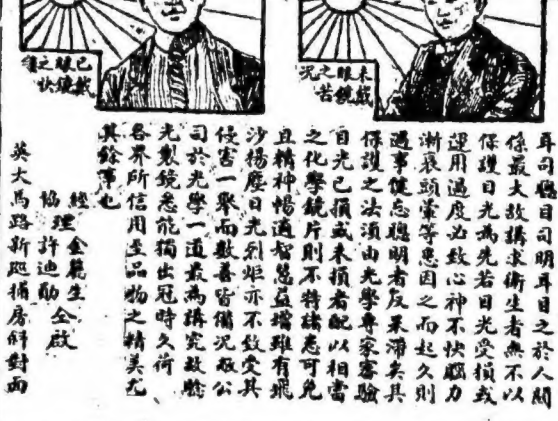 未戴
眼鏡
之苦
况
已戴
眼鏡
之狀
耳司聰目司明耳目之於人關
係最大故講求衛生者無不以
保護目光為先若目光受損或
運用過度必致心神不快腦力
漸衰頭暈等患因之而起久則
遇事健忘聰明者反呆滯矣其
保護之法須由光學專家審驗
目光已損或未損者配以相當
之化學鏡片則不特諸患可免
且精神暢適智慧益增雖有飛
沙揚塵日光烈炬亦不致受其
侵害一舉而數善皆備況敝公
司於光學一道最為講究故驗
光製鏡悉能獨出冠時久荷
各界所信用至品物之精美尤
其餘事也
經理金 生
協理許迪勳仝啟
英大馬路新巡捕房斜對面